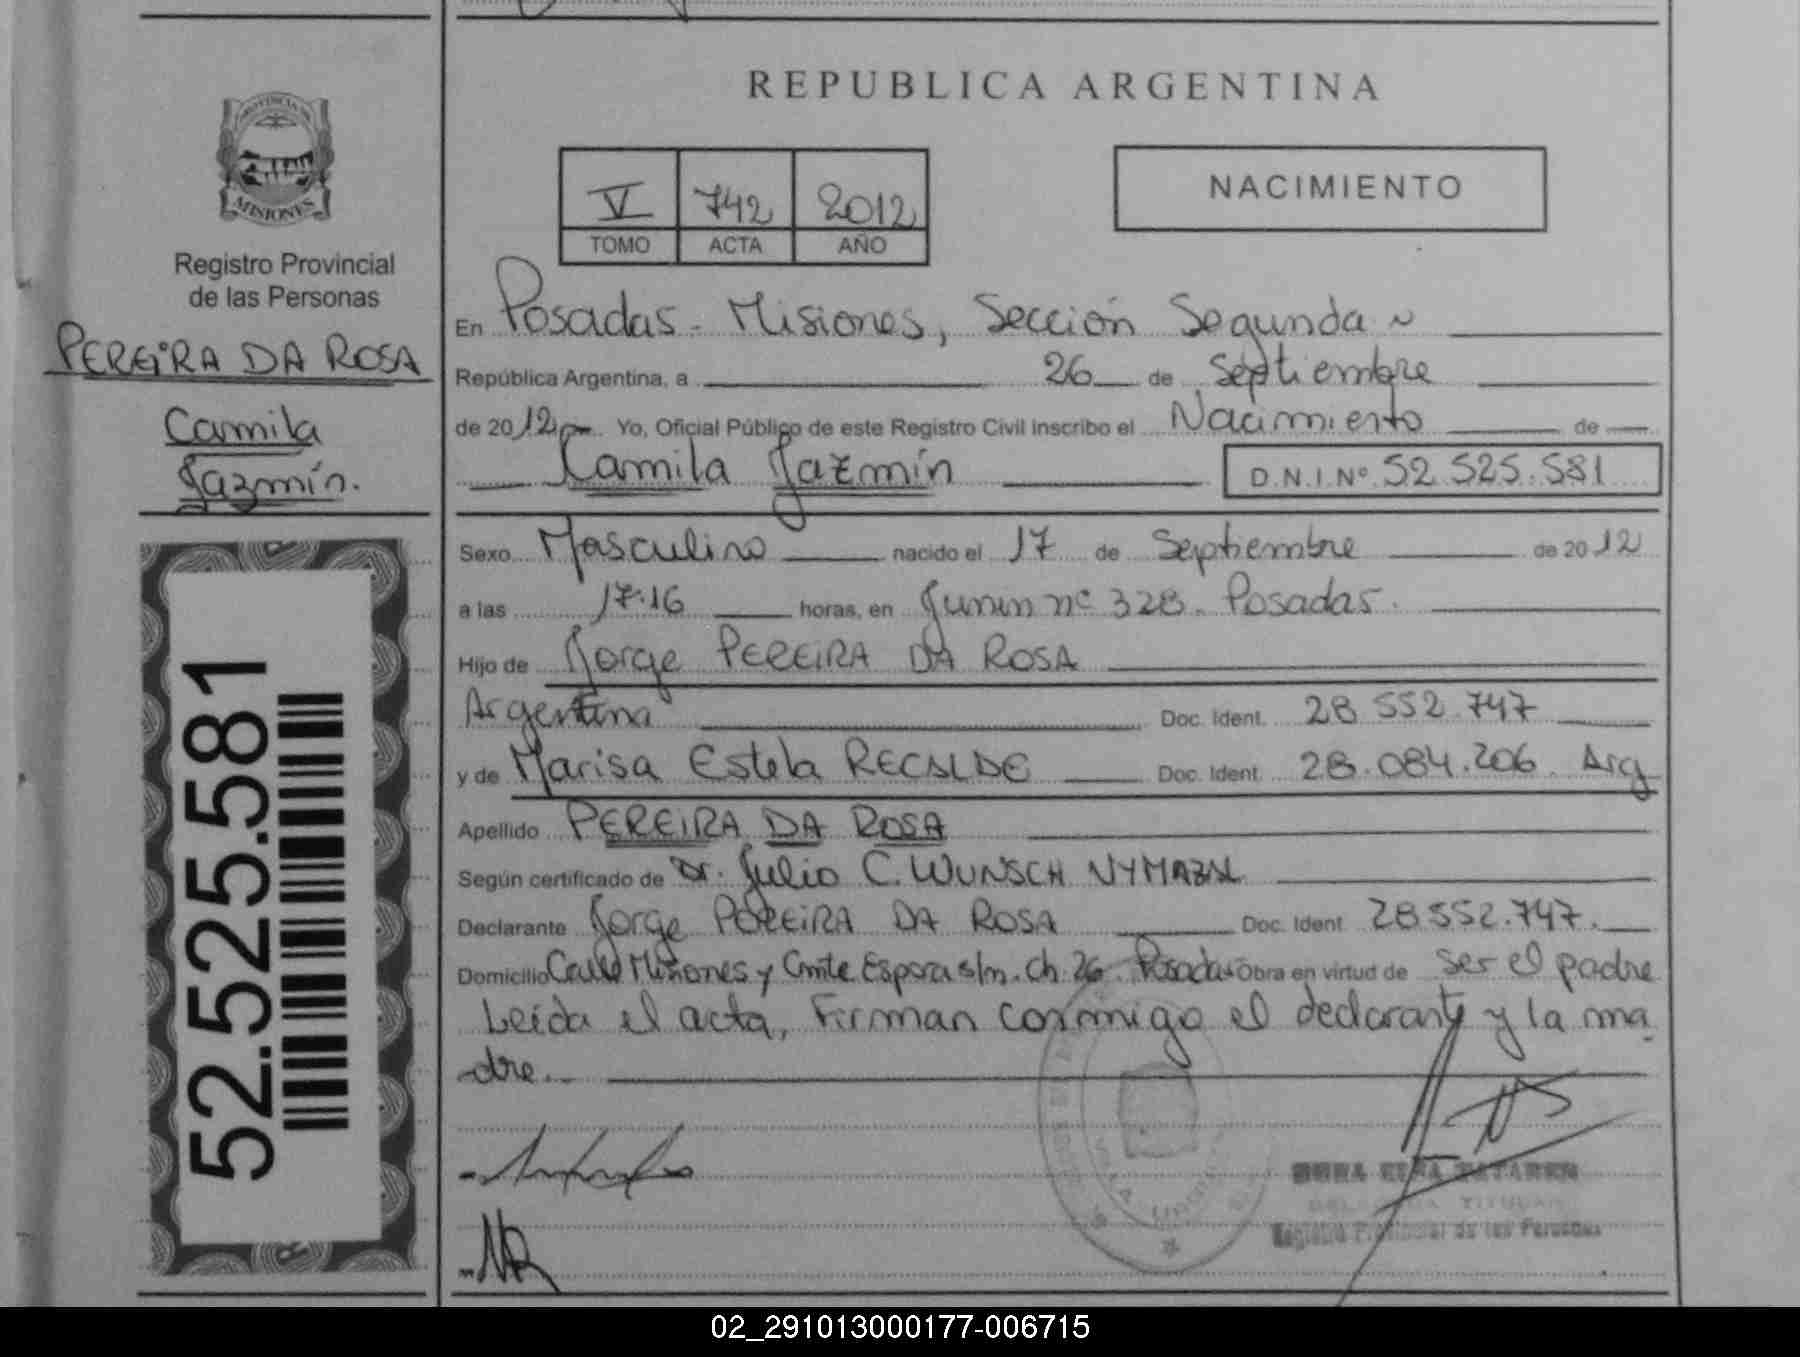 REPUBLICA ARGENTINA
PROVINCIA DE
MISIONES
Registro Provincial
de las Personas
PEREIRA DA ROSA
Camila
Jazmín.
52.525.581
V 742 2012
TOMO ACTA AÑO
NACIMIENTO
En Posadas - Misiones, Sección Segunda
República Argentina, a 26 de Septiembre
de 2012 Yo, Oficial Público de este Registro Civil Inscribo el Nacimiento de
Camila Jazmín D.N.I.Nº 52.525.581
Sexo Masculino nacido el 17 de Septiembre de 2012
a las 17:16 horas, en Junin nº 328. Posadas.
Hijo de Jorge PEREIRA DA ROSA
Argentina Doc. Ident. 28.552.747
y de Marisa Estela RECALDE Doc. Ident. 28.084.206. Arg
Apellido PEREIRA DA ROSA
Según certificado de Dr. Julio C. WUNSCH NYMAZAL
Declarante Jorge PEREIRA DA ROSA Doc. Ident. 28.552.747.
Domicilio Calle Miñones y Cmte Espora s/n. Ch. 26. Posadas Obra en virtud de ser el padre
Leída el acta, Firman conmigo el declarante y la ma
dre.
TITULAR
Registro Provincial de las Personas
02_291013000177-006715